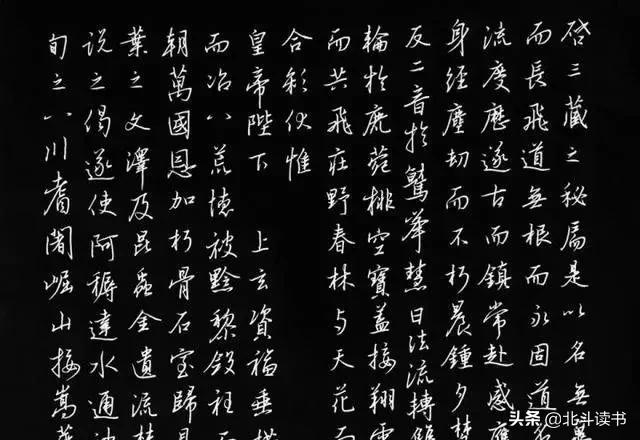 啓三藏之秘扃是以名無翼
而長飛道無根而永固道名
流慶歷遂古而鎮常赴感應
身經塵劫而不朽晨鍾夕梵
交二音於鷲峯慧日法流轉雙
輪於鹿菀排空寶蓋接翔雲
而共飛莊野春林与天花而
合彩伏惟
皇帝陛下 上玄資福垂拱
而治八荒德被黔黎斂衽而
朝萬國恩加朽骨石室歸貝
葉之文澤及昆蟲金匱流梵
説之偈遂使阿耨達水通神
甸之八川耆闍崛山接嵩華
头条 @北斗读书